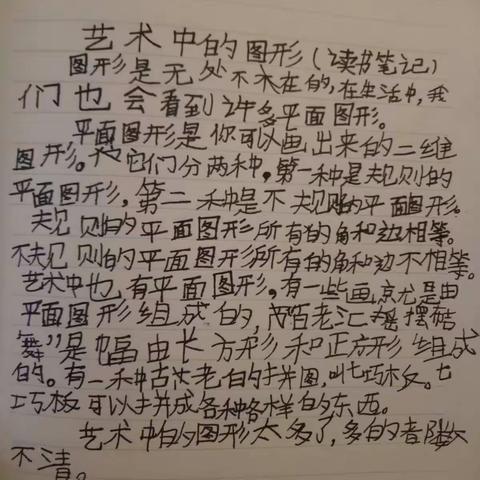 艺术中的图形(读书笔记)
图形是无处不在的,在生活中,我
们也会看到许多平面图形。
平面图形是你可以画出来的二维
图形。它们分两种,第一种是规则的
平面图形,第二种是不规则的平面图形。
规则的平面图形所有的角和边相等。
不规则的平面图形所有的角和边不相等。
艺术中也有平面图形,有一些画,就是由
平面图形组成的,百老汇摇摆
舞”是幅由长方形和正方形组成
的。有一种古老的拼图,叫七巧板。七
巧板可以拼成各种各样的东西。
艺术中的图形太多了,多的都数
不清。